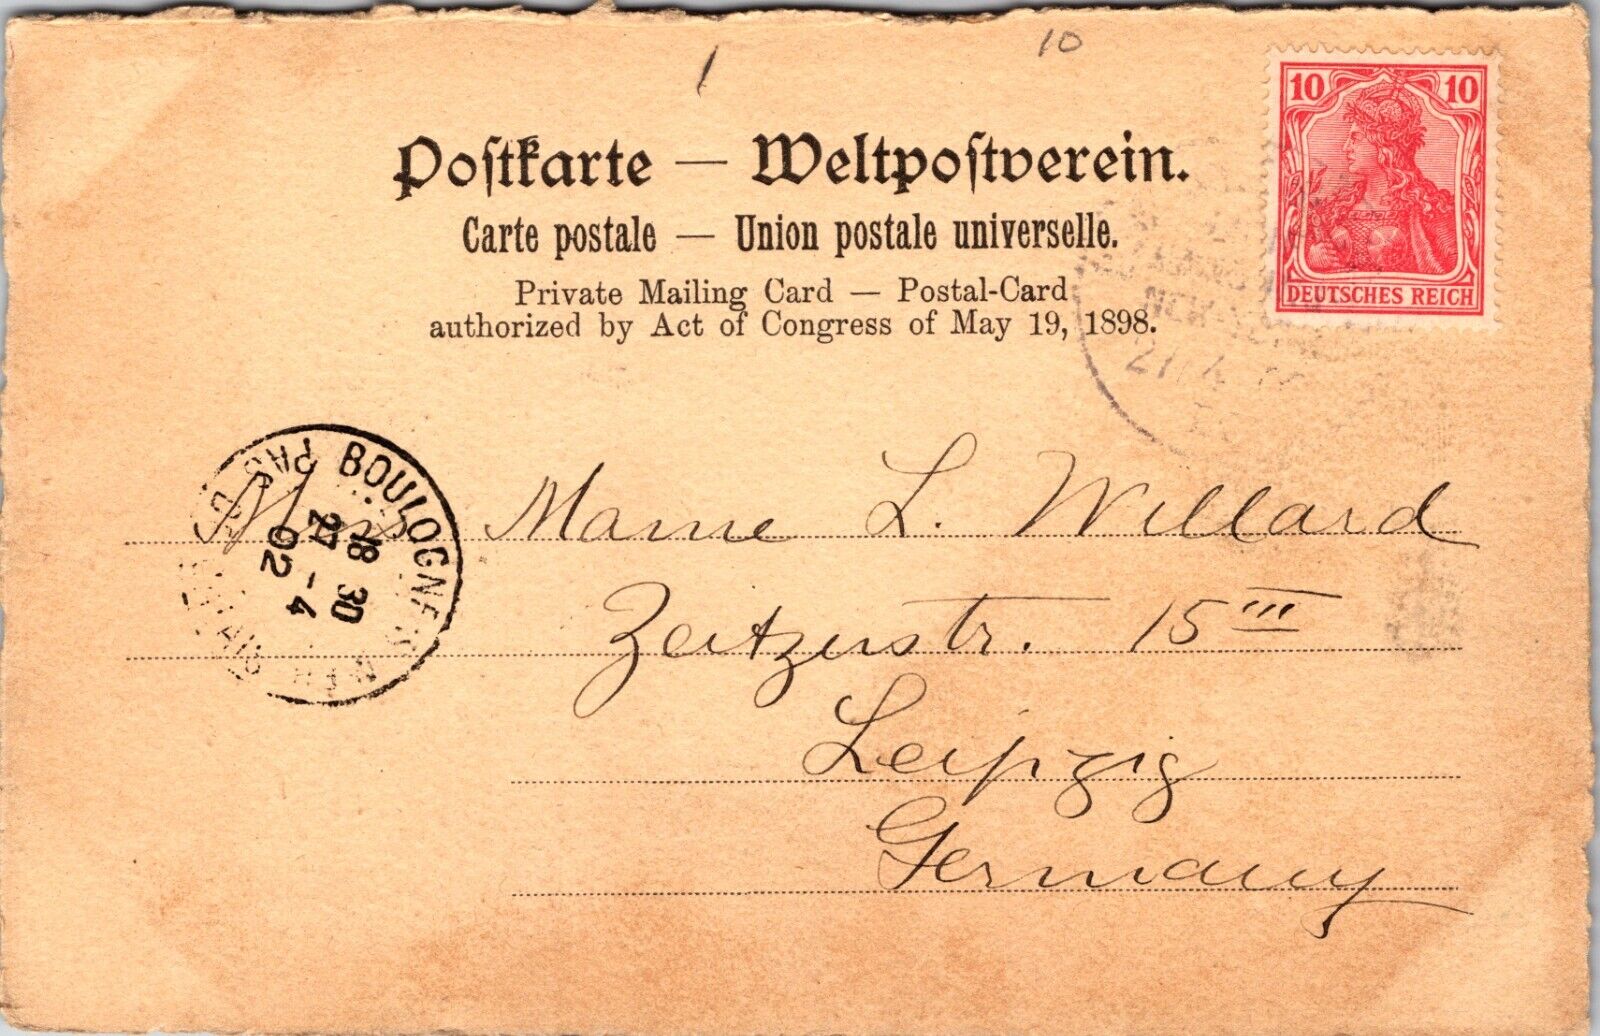 1
10
10 10
DEUTSCHES REICH
Poſtkarte — Weltpoſtverein.
Carte postale — Union postale universelle.
Private Mailing Card — Postal-Card
authorized by Act of Congress of May 19, 1898.
NEW-
BOULOGNE S. MER PAS
18 30
27 - 4
02
Miss Mame L. Willard
Zeitzerstr. 15 III
Leipzig
Germany